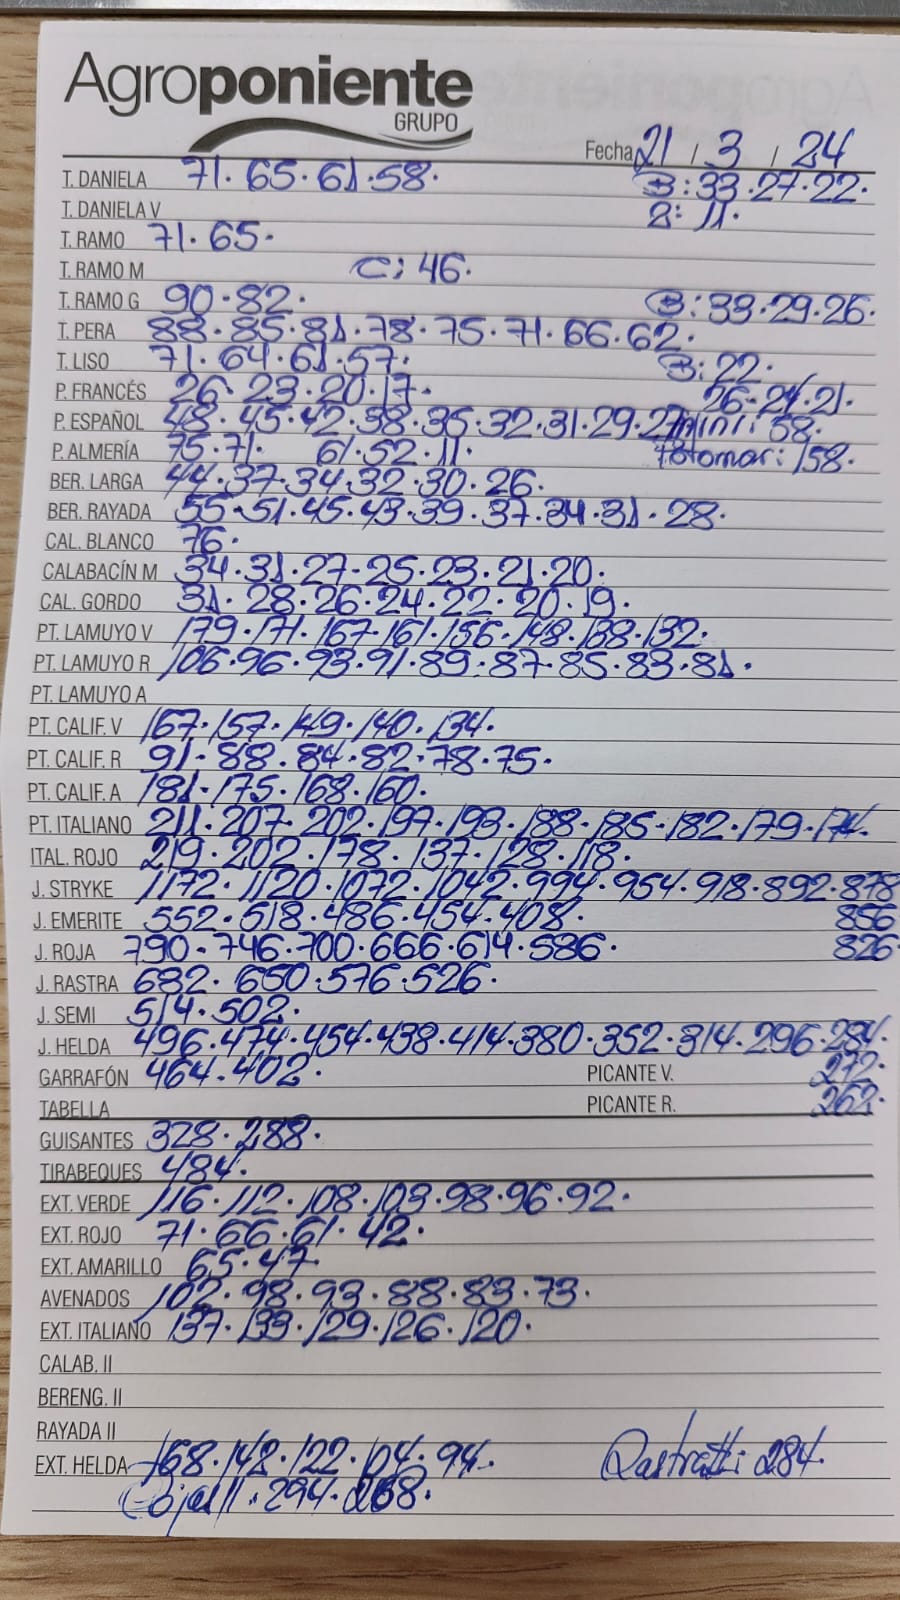 Agroponiente
GRUPO
Fecha 21 / 3 / 24
T. DANIELA 71. 65. 61. 58. B: 33. 27. 22.
T. DANIELA V 2: 11.
T. RAMO 71. 65.
T. RAMO M C: 46.
T. RAMO G 90. 82. B: 33. 29. 26.
T. PERA 88. 85. 81. 78. 75. 71. 66. 62.
T. LISO 71. 64. 61. 57. B: 22.
P. FRANCÉS 26. 23. 20. 17. 26. 24. 21.
P. ESPAÑOL 48. 45. 42. 38. 35. 32. 31. 29. 27 mini: 58.
P. ALMERÍA 75. 71. 61. 52. 11. 158.
BER. LARGA 44. 37. 34. 32. 30. 26.
BER. RAYADA 55. 51. 45. 43. 39. 37. 34. 31. 28.
CAL. BLANCO 76.
CALABACÍN M 34. 31. 27. 25. 23. 21. 20.
CAL. GORDO 31. 28. 26. 24. 22. 20. 19.
PT. LAMUYO V 179. 171. 167. 161. 156. 148. 138. 132.
PT. LAMUYO R 106. 96. 93. 91. 89. 87. 85. 83. 81.
PT. LAMUYO A
PT. CALIF. V 167. 157. 149. 140. 134.
PT. CALIF. R 91. 88. 84. 82. 78. 75.
PT. CALIF. A 181. 175. 168. 160.
PT. ITALIANO 211. 207. 202. 197. 193. 188. 185. 182. 179. 174.
ITAL. ROJO 219. 202. 178. 137. 128. 118.
J. STRYKE 1172. 1120. 1072. 1042. 994. 954. 918. 892. 878
J. EMERITE 552. 518. 486. 454. 408. 856
J. ROJA 790. 746. 700. 666. 614. 586. 826.
J. RASTRA 682. 650. 576. 526.
J. SEMI 514. 502.
J. HELDA 496. 474. 454. 438. 414. 380. 352. 314. 296. 284.
GARRAFÓN 464. 402. PICANTE V. 272.
TABELLA PICANTE R. 262.
GUISANTES 328. 288.
TIRABEQUES 484.
EXT. VERDE 116. 112. 108. 103. 98. 96. 92.
EXT. ROJO 71. 66. 61. 42.
EXT. AMARILLO 65. 47.
AVENADOS 102. 98. 93. 88. 83. 73.
EXT. ITALIANO 137. 133. 129. 126. 120.
CALAB. II
BERENG. II
RAYADA II
EXT. HELDA 168. 142. 122. 104. 94. 284.
Roja II. 294. 268.